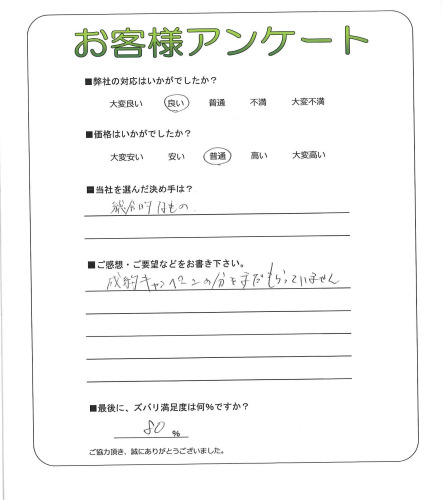 お客様アンケート
■弊社の対応はいかがでしたか?
大変良い 良い 普通 不満 大変不満
■価格はいかがでしたか?
大変安い 安い 普通 高い 大変高い
■当社を選んだ決め手は?
総合的なもの
■ご感想・ご要望などをお書き下さい。
成約キャンペーンの分をまだもらっていません
■最後に、ズバリ満足度は何%ですか?
80 %
ご協力頂き、誠にありがとうございました。